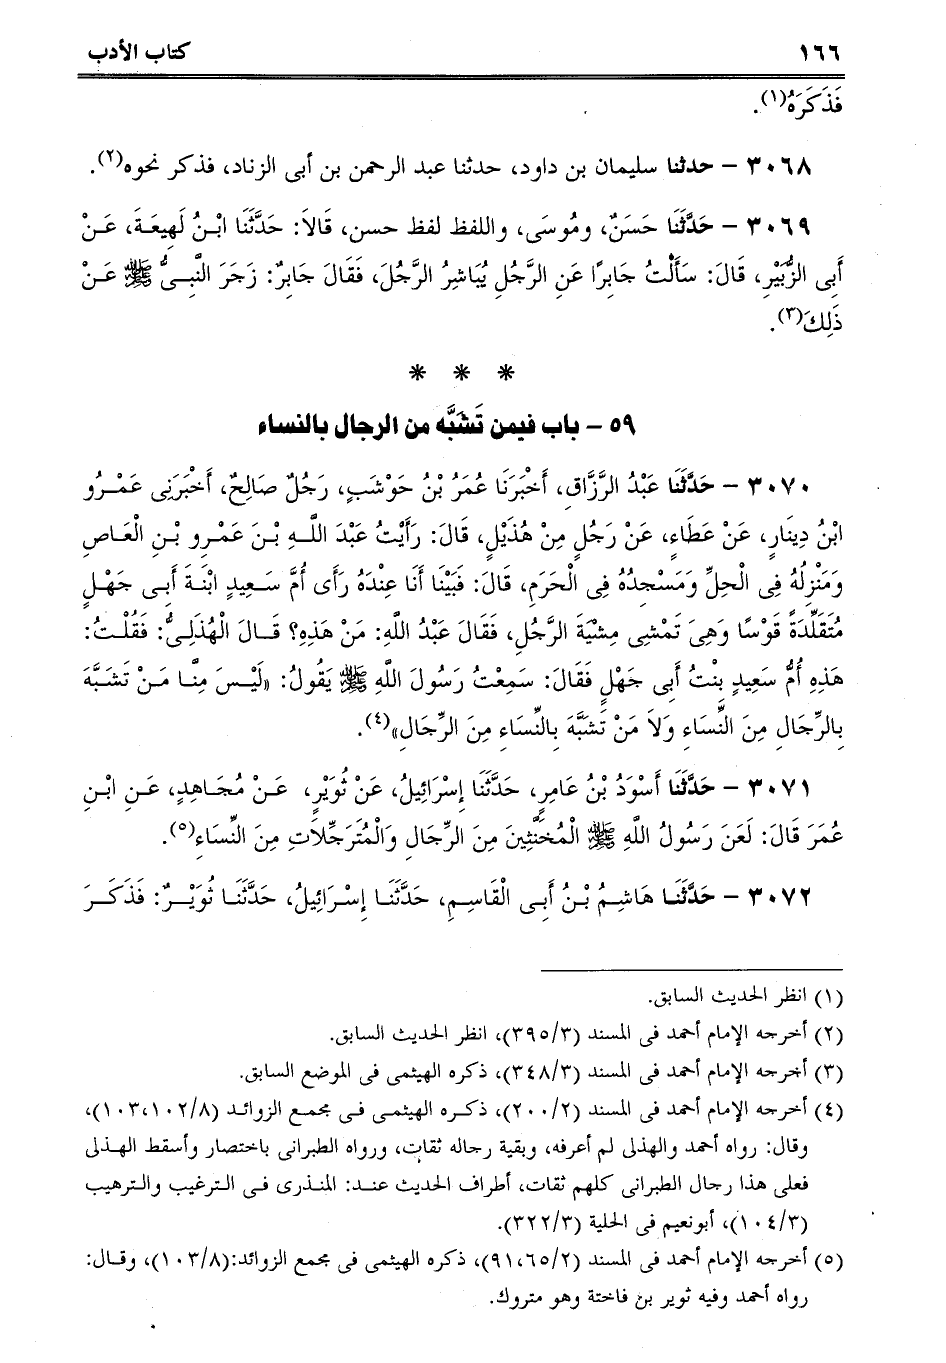 ١٦٦ كتاب الأدب
فَذَكَرَهُ(١).
٣٠٦٨ – حدثنا سليمان بن داود، حدثنا عبد الرحمن بن أبى الزناد، فذكر نحوه(٢).
٣٠٦٩ – حَدَّثَنَا حَسَنٌ، ومُوسَى، واللفظ لفظ حسن، قَالاَ: حَدَّثَنَا ابْنُ لَهِيعَةَ، عَنْ
أَبِى الزُّبَيْرِ، قَالَ: سَأَلْتُ جَابِرًا عَنِ الرَّجُلِ يُبَاشِرُ الرَّجُلَ، فَقَالَ جَابِرٌ: زَجَرَ النَّبِىُّ ﷺ عَنْ
ذَلِكَ(٣).
* * *
٥٩ – باب فيمن تَشَبَّه من الرجال بالنساء
٣٠٧٠ – حَدَّثَنَا عَبْدُ الرَّزَّاقِ، أَخْبَرَنَا عُمَرُ بْنُ حَوْشَبٍ، رَجُلٌ صَالِحٌ، أَخْبَرَنِى عَمْرُو
ابْنُ دِينَارٍ، عَنْ عَطَاءٍ، عَنْ رَجُلٍ مِنْ هُذَيْلٍ، قَالَ: رَأَيْتُ عَبْدَ اللَّهِ بْنَ عَمْرِو بْنِ الْعَاصِ
وَمَنْزِلُهُ فِى الْحِلِّ وَمَسْجِدُهُ فِى الْحَرَمِ، قَالَ: فَبَيْنَا أَنَا عِنْدَهُ رَأَى أُمَّ سَعِيدٍ ابْنَةَ أَبِى جَهْلٍ
مُتَقَلِّدَةً قَوْسًا وَهِىَ تَمْشِى مِشْيَةَ الرَّجُلِ، فَقَالَ عَبْدُ اللَّهِ: مَنْ هَذِهِ؟ قَالَ الْهُذَلِىُّ: فَقُلْتُ:
هَذِهِ أُمُّ سَعِيدٍ بِنْتُ أَبِى جَهْلٍ فَقَالَ: سَمِعْتُ رَسُولَ اللَّهِ ﷺ يَقُولُ: «لَيْسَ مِنَّا مَنْ تَشَبَّهَ
بِالرِّجَالِ مِنَ النِّسَاءِ وَلاَ مَنْ تَشَبَّهَ بِالنِّسَاءِ مِنَ الرِّجَالِ»(٤).
٣٠٧١ – حَدَّثَنَا أَسْوَدُ بْنُ عَامِرٍ، حَدَّثَنَا إِسْرَائِيلُ، عَنْ ثُوَيْرٍ، عَنْ مُجَاهِدٍ، عَنِ ابْنِ
عُمَرَ قَالَ: لَعَنَ رَسُولُ اللَّهِ ﷺ الْمُخَنَّثِينَ مِنَ الرِّجَالِ وَالْمُتَرَجِّلاَتِ مِنَ النِّسَاءِ(٥).
٣٠٧٢ – حَدَّثَنَا هَاشِمُ بْنُ أَبِى الْقَاسِمِ، حَدَّثَنَا إِسْرَائِيلُ، حَدَّثَنَا ثُوَيْرٌ: فَذَكَرَ
(١) انظر الحديث السابق.
(٢) أخرجه الإمام أحمد فى المسند (٣٩٥/٣)، انظر الحديث السابق.
(٣) أخرجه الإمام أحمد فى المسند (٣٤٨/٣)، ذكره الهيثمى فى الموضع السابق.
(٤) أخرجه الإمام أحمد فى المسند (٢٠٠/٢)، ذكره الهيثمى فى مجمع الزوائد (١٠٣،١٠٢/٨)،
وقال: رواه أحمد والهذلى لم أعرفه، وبقية رجاله ثقات، ورواه الطبرانى باختصار وأسقط الهذلى
فعلى هذا رجال الطبرانى كلهم ثقات، أطراف الحديث عند: المنذرى فى الترغيب والترهيب
(١٠٤/٣)، أبونعيم فى الحلية (٣٢٢/٣).
(٥) أخرجه الإمام أحمد فى المسند (٩١،٦٥/٢)، ذكره الهيثمى فى مجمع الزوائد:(١٠٣/٨)، وقال:
رواه أحمد وفيه ثوير بن فاختة وهو متروك.